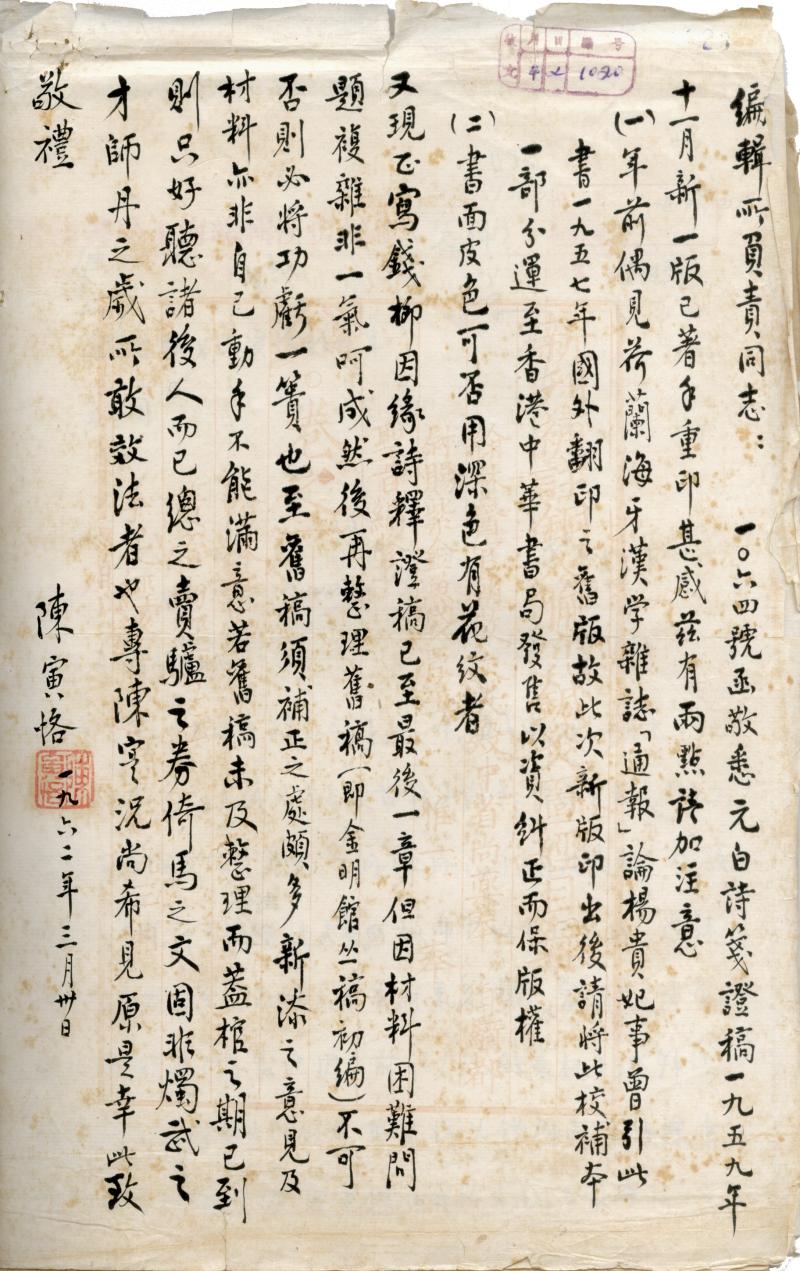 編輯所負責同志： 一〇六四號函敬悉元白詩箋證稿一九五九年
十一月新一版已著手重印甚感茲有兩點請加注意
(一)年前偶見荷蘭海牙漢学雜誌「通報」論楊貴妃事曾引此
書一九五七年國外翻印之舊版故此次新版印出後請將此校補本
一部分運至香港中華書局發售以資糾正而保版權
(二)書面皮色可否用深色有花紋者
又現正寫錢柳因緣詩釋證稿已至最後一章但因材料困難問
題複雜非一氣呵成然後再整理舊稿(即金明館丛稿初編)不可
否則必將功虧一簣也至舊稿須補正之處頗多新添之意見及
材料亦非自己動手不能滿意若舊稿未及整理而蓋棺之期已到
則只好聽諸後人而已總之賣驢之券倚馬之文固非燭武之
才師丹之歲所敢效法者也專陳寔況尚希見原是幸此致
敬禮
陳寅恪 一九六二年三月卅日
號
1020